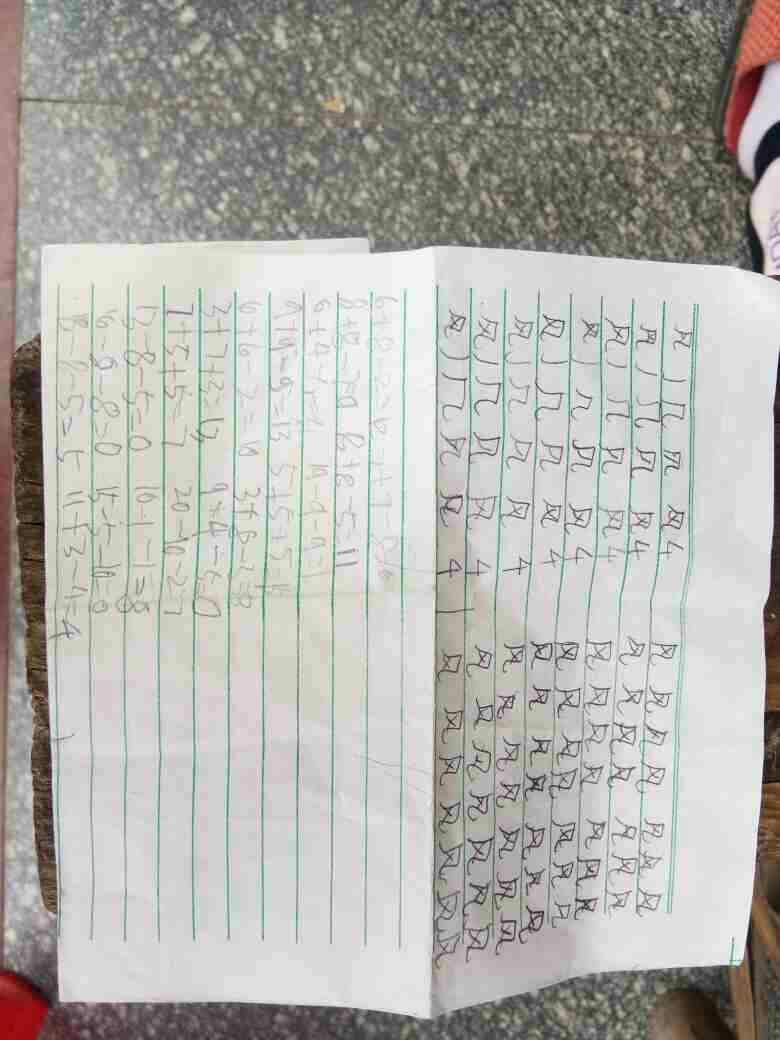 风 丿 几 风 风 4 风 风 风 风 风 风 风
风 丿 几 风 风 4 风 风 风 风 风 风 风
风 丿 几 风 风 4 风 风 风 风 风 风 风
风 丿 几 风 风 4 风 风 风 风 风 风 风
风 丿 几 风 风 4 风 风 风 风 风 风 风
风 丿 几 风 风 4 风 风 风 风 风 风 风
风 丿 几 风 风 4 风 风 风 风 风 风 风
风 丿 几 风 风 4 风 风 风 风 风 风 风
8+8-7=9 8+8-5=11
19-9-9=1
9+9-5=13 5+5+5=15
6+6-2=10 3+8-3=8
3+7+3=13
7+5-5=7
13-8-5=0 10-1-1=8
16-8-8=0 15-5-10=0
18-8-5=5 11-3-4=4